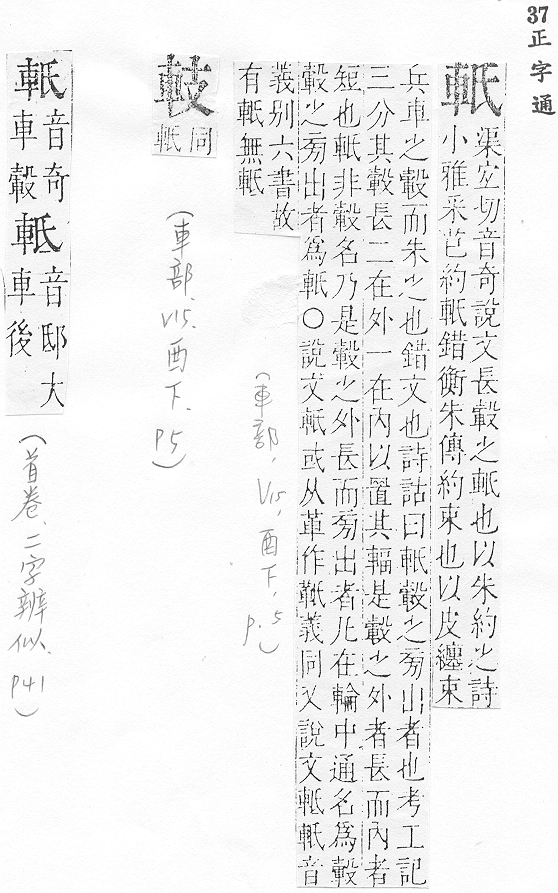 37正字通
軝
渠宐切音奇說文長轂之軝也以朱約之詩
小雅采芑約軝錯衡朱傳約束也以皮纏束
兵車之轂而朱之也錯文也詩詁曰軝轂之旁出者也考工記
三分其轂長二在外一在內以置其輻是轂之外者長而內者
短也軝非轂名乃是轂之外長而旁出者凡在輪中通名爲轂
轂之旁出者爲軝○說文軝或从革作義同又說文軧軝音
義别六書故
有軝無軧
(車部,V15,酉下,p.5)
同
軝
(車部、V15、酉下、P5)
軝
音奇
車轂
軧
音邸大
車後
(首卷、二字辨似、P41)